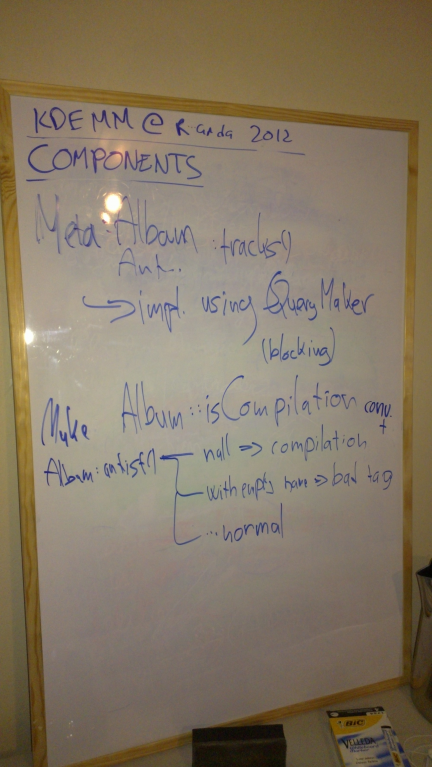 KDE MM @ Randa 2012
COMPONENTS
Meta::Album ::tracks()
Aut.
impl. using QueryMaker
(blocking)
Make Album::isCompilation conv.
Album::artist() null => compilation
with empty name => bad tag
...normal
BIC
VELLEDA